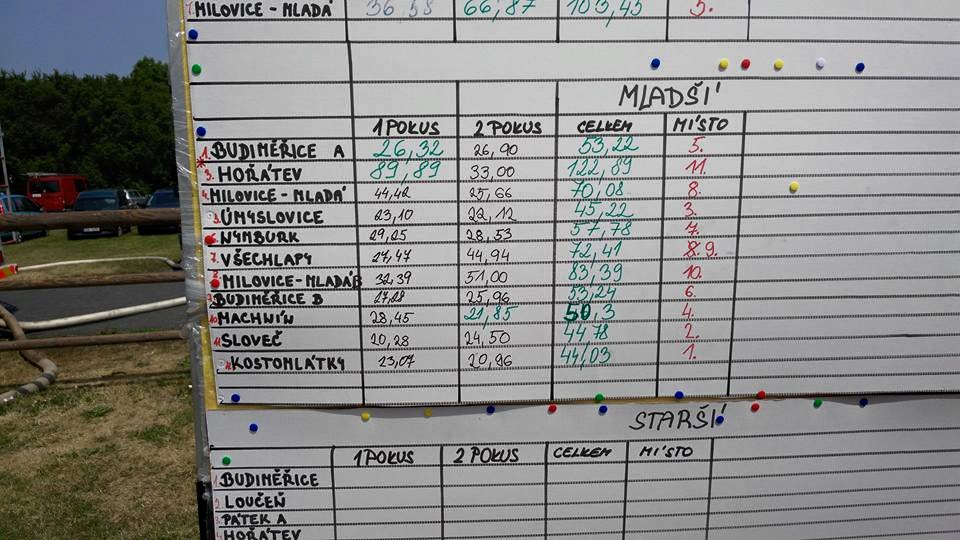 MILOVICE - MLADÁ 36,58 66,87 103,45 5.
MLADŠÍ
1 POKUS 2 POKUS CELKEM MÍSTO
1. BUDIMĚŘICE A 26,32 26,90 53,22 5.
3. HOŘÁTEV 89,89 33,00 122,89 11.
4. MILOVICE - MLADÁ 44,42 25,66 70,08 8.
ÚMYSLOVICE 23,10 22,12 45,22 3.
NYMBURK 29,25 28,53 57,78 7.
7. VŠECHLAPY 27,47 44,94 72,41 8. 9.
MILOVICE-MLADÁ B 32,39 51,00 83,39 10.
BUDIMĚŘICE B 27,28 25,96 53,24 6.
10. MACHNÍN 28,45 21,85 50,3 4.
11. SLOVEČ 20,28 24,50 44,78 2.
KOSTOMLÁTKY 23,07 20,96 44,03 1.
STARŠÍ
1 POKUS 2 POKUS CELKEM MÍSTO
1. BUDIMĚŘICE
2. LOUČEŇ
3. PÁTEK A
4. HOŘÁTEV